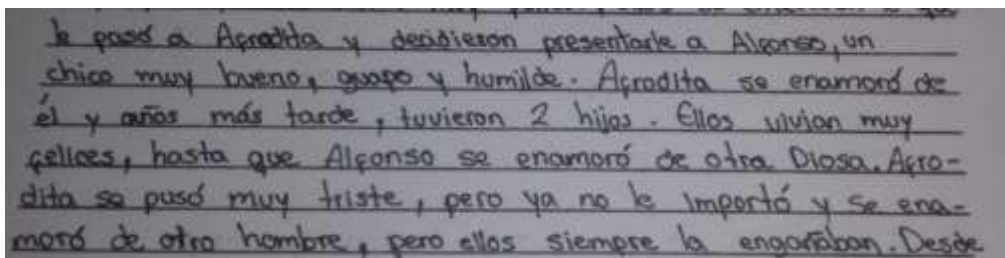 le pasó a Afrodita y decidieron presentarle a Alfonso, un
chico muy bueno, guapo y humilde. Afrodita se enamoró de
él y años más tarde, tuvieron 2 hijos. Ellos vivian muy
felices, hasta que Alfonso se enamoró de otra Diosa. Afro-
dita se pusó muy triste, pero ya no le importó y se ena-
moró de otro hombre, pero ellos siempre la engañaban. Desde